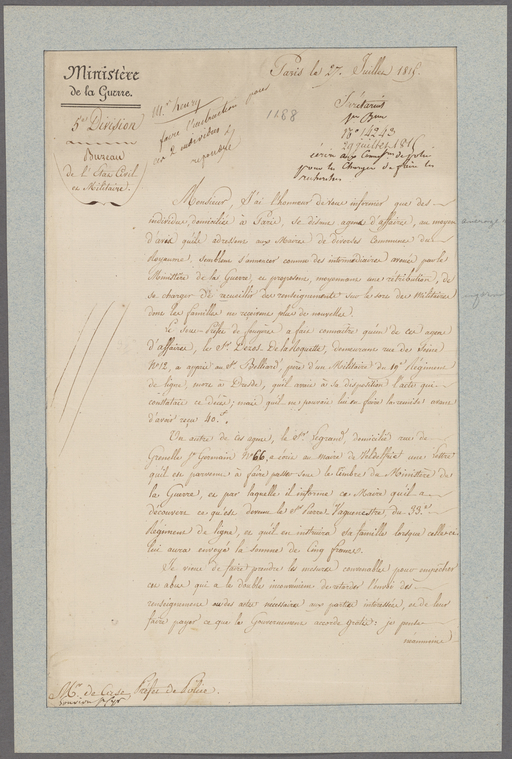 Ministère
de la Guerre.
5e Division
Bureau
de l'Etat Civil
et Militaire.
Paris le 27 Juillet 1815.
Mr henry
faire l'instruction pour
ces 2 individus &
réponse
1188
Secrétariat
1er Bau
No 14243
29 juillet 1815
écrire aux de police
pour les charger de faire les
recherches
Monsieur, J'ai l'honneur de vous informer que des
individus, domiciliés à Paris, se disant agens d'affaires, au moyen
d'avis qu'ils adressent aux Maires de diverses Communes du
Royaume, semblent s'annoncer comme des intermédiaires avoués par le
Ministère de la Guerre, et proposent, moyennant une rétribution, de
se charger de recueillir des renseignements sur le sort des Militaires
dont les familles ne reçoivent plus de nouvelles.
Le Sous-Préfet de fougère a fait connaitre qu'un de ces agens
d'affaires, le Sr. Perot De la Hoguette, demeurant rue des
No 12, a appris au Sr. Billiard, père d'un Militaire du 19e Régiment
de ligne, mort à Dresde, qu'il avait à sa disposition l'acte qui
constatait ce décès; mais qu'il ne pouvait lui en faire la remise avant
d'avoir reçu 40.f
Un autre de ces agens, le Sr. Legrand, domicilié rue de
Grenelle St Germain No 66, a écrit au maire de une lettre
qu'il est parvenu à faire passer sous le timbre du Ministère de
la Guerre, et par laquelle il informe ce Maire qu'il a
découvert ce qu'est devenu le Sr. Pierre Vaguenestre du 33.e
Régiment de ligne, et qu'il en instruira sa famille lorsque celle-ci
lui aura envoyé la somme de Cinq francs.
Je viens de faire prendre les mesures convenables pour empêcher
ces abus qui a le double inconvénient de retarder l'envoi des
renseignements ou des actes nécessaires aux parties intéressées, et de leur
faire payer ce que le Gouvernement accorde gratis: je pense
néanmoins
Mr. de Caze, Préfet de Police.